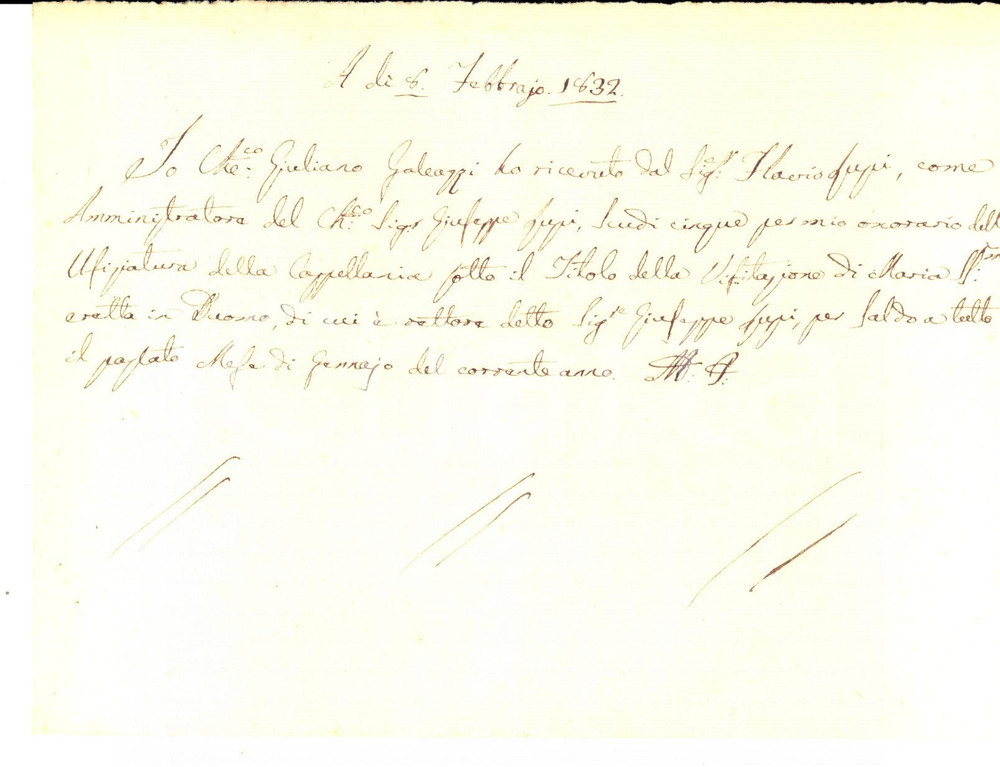 A dì 8. Febbrajo. 1832.
Io Che:co Giuliano Galeazzi ho ricevuto dal Sig:r Flavio Lupi, come
Amministratore del Ch:co Sig:r Giuseppe Lupi, Scudi cinque per mio onorario dell
Ufiziatura della Cappellania sotto il Titolo della Visitazione di Maria SS:
eretta in Duomo, di cui è rettore detto Sig:re Giuseppe Lupi, per saldo a tutto
il passato Mese di Gennajo del corrente anno.